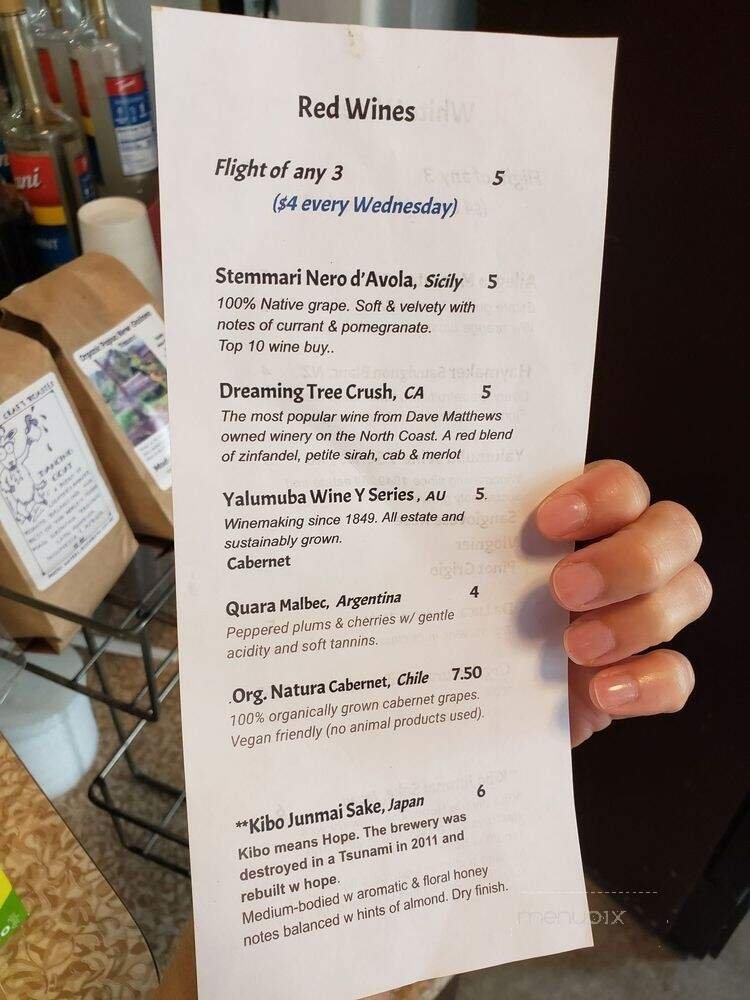 Red Wines
Flight of any 3 5
($4 every Wednesday)
Stemmari Nero d'Avola, Sicily 5
100% Native grape. Soft & velvety with
notes of currant & pomegranate.
Top 10 wine buy..
Dreaming Tree Crush, CA 5
The most popular wine from Dave Matthews
owned winery on the North Coast. A red blend
of zinfandel, petite sirah, cab & merlot
Yalumuba Wine Y Series , AU 5.
Winemaking since 1849. All estate and
sustainably grown.
Cabernet
Quara Malbec, Argentina 4
Peppered plums & cherries w/ gentle
acidity and soft tannins.
.Org. Natura Cabernet, Chile 7.50
100% organically grown cabernet grapes.
Vegan friendly (no animal products used).
**Kibo Junmai Sake, Japan 6
Kibo means Hope. The brewery was
destroyed in a Tsunami in 2011 and
rebuilt w hope.
Medium-bodied w aromatic & floral honey
notes balanced w hints of almond. Dry finish.
CRAFT ROASTED
DANCING
GOAT
menupix